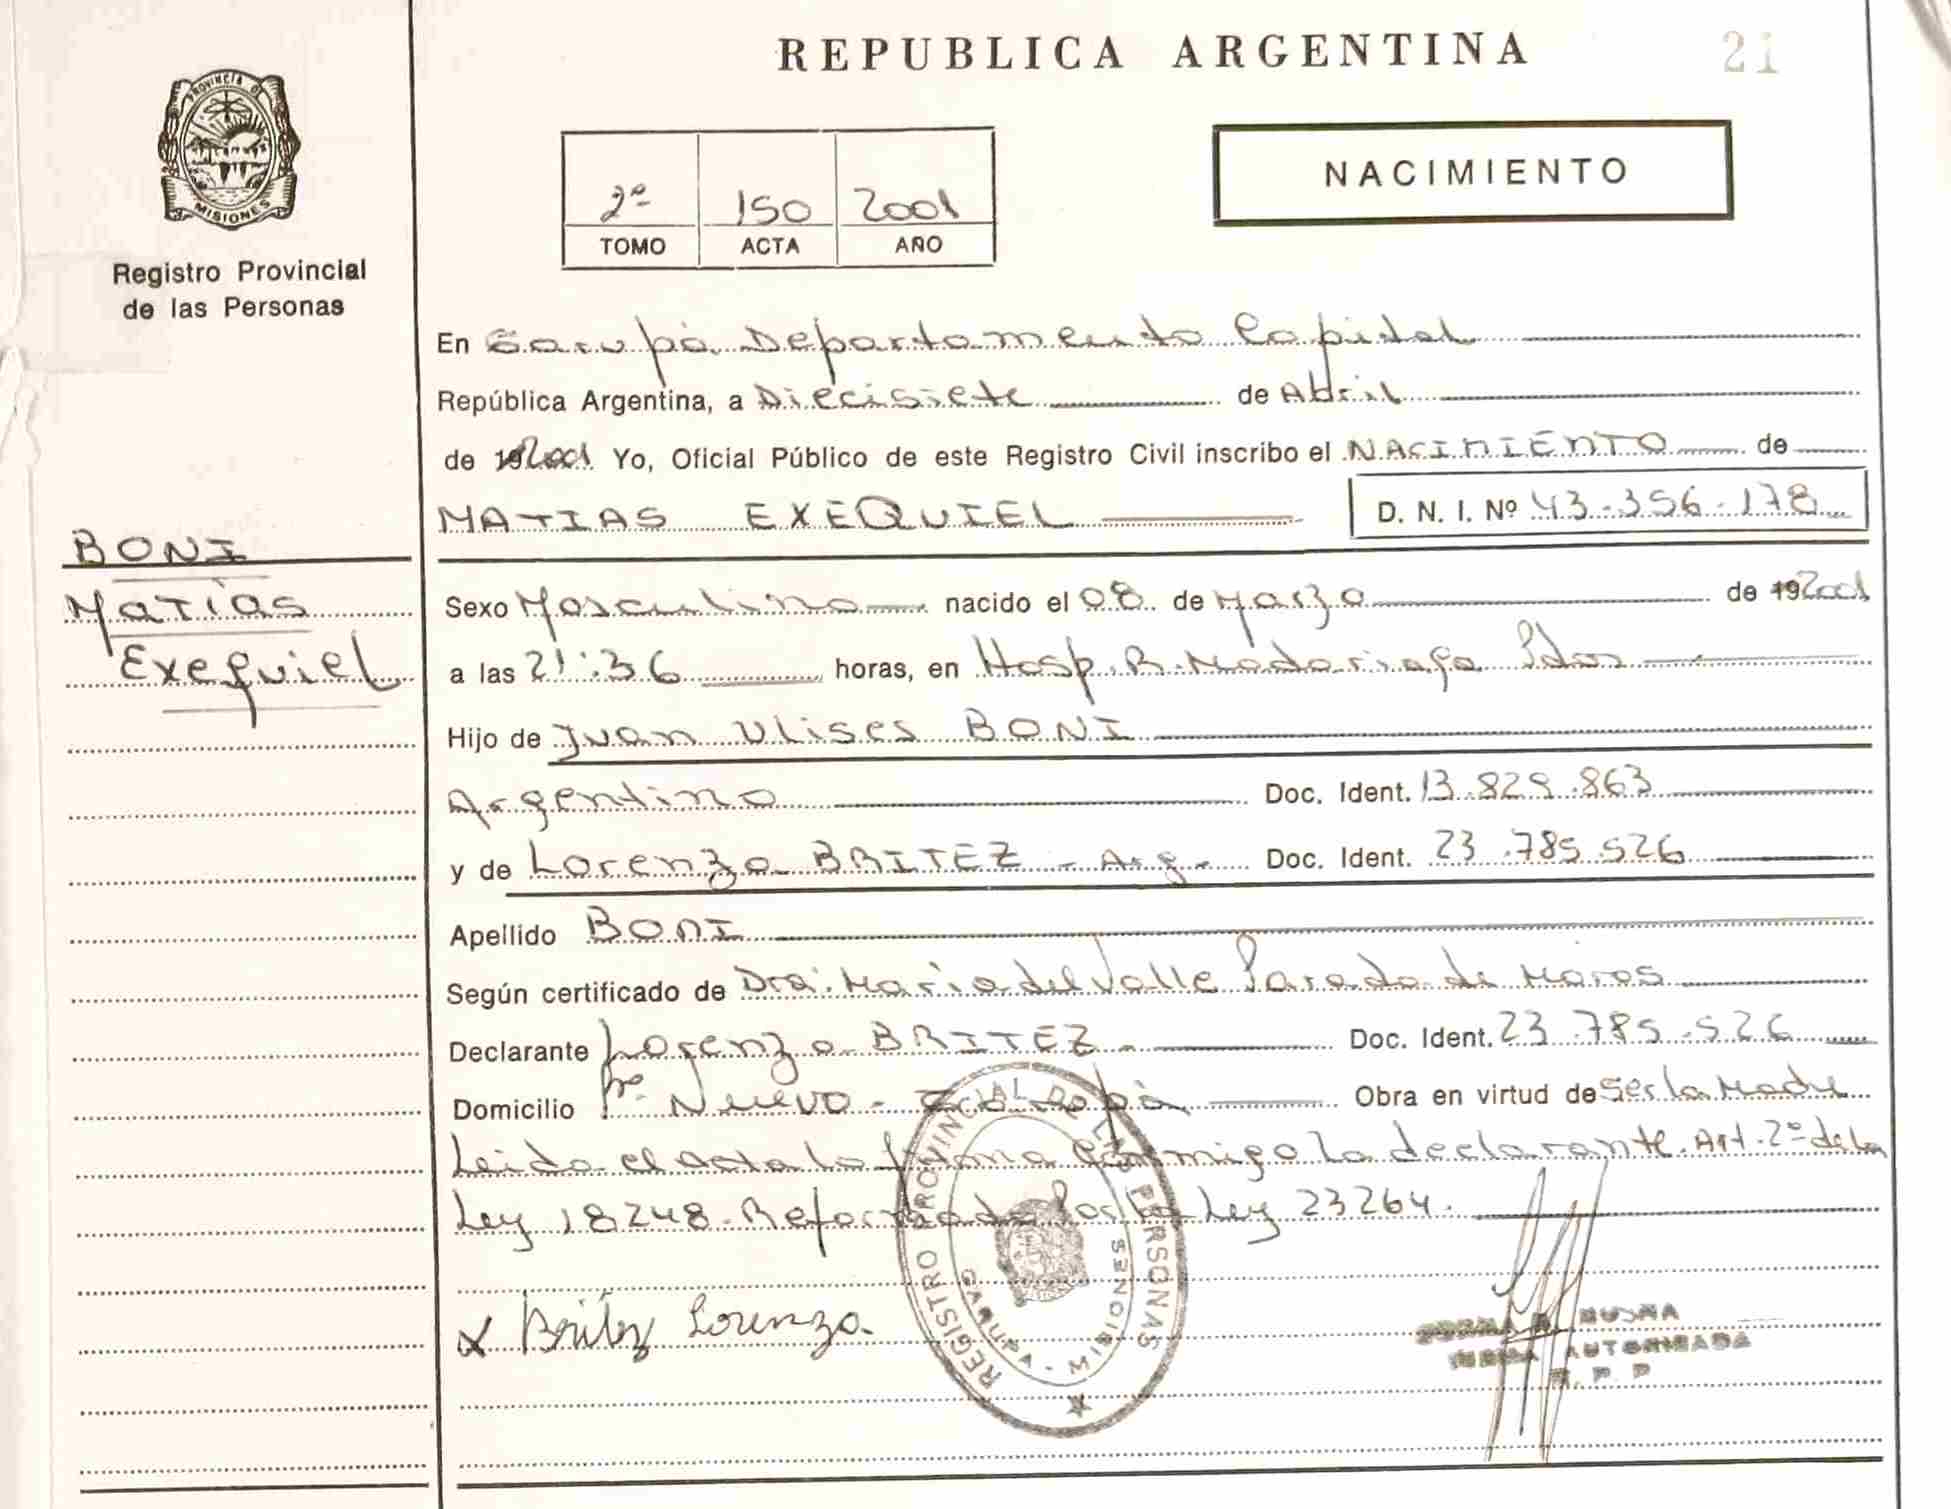 REPUBLICA ARGENTINA
21
PROVINCIA DE
MISIONES
Registro Provincial
de las Personas
2º 150 2001
TOMO ACTA AÑO
NACIMIENTO
En Garupá Departamento Capital
República Argentina, a Diecisiete de Abril
de 192001 Yo, Oficial Público de este Registro Civil inscribo el NACIMIENTO de
MATIAS EXEQUIEL D. N. I. Nº 43.356.178
BONI
Matías
Exequiel
Sexo Masculino nacido el 08 de Marzo de 192001
a las 21:36 horas, en Hosp. R. Madariaga Pdas
Hijo de Juan Ulises BONI
Argentino Doc. Ident. 13.829.863
y de Lorenza BRITEZ - Arg. Doc. Ident. 23.785.526
Apellido BONI
Según certificado de Dra. Maria del Valle Parada de
Declarante Lorenza BRITEZ - Doc. Ident. 23.785.526
Domicilio Nuevo - Garupá Obra en virtud de Ser la Madre
Leida el acta la firma conmigo la declarante. Art. 2º de la
Ley 18248. Reformada por la Ley 23264.
Britez Lorenza
REGISTRO PROVINCIAL DE LAS PERSONAS
GARUPA - MISIONES
AUTORIZADA
R. P. P